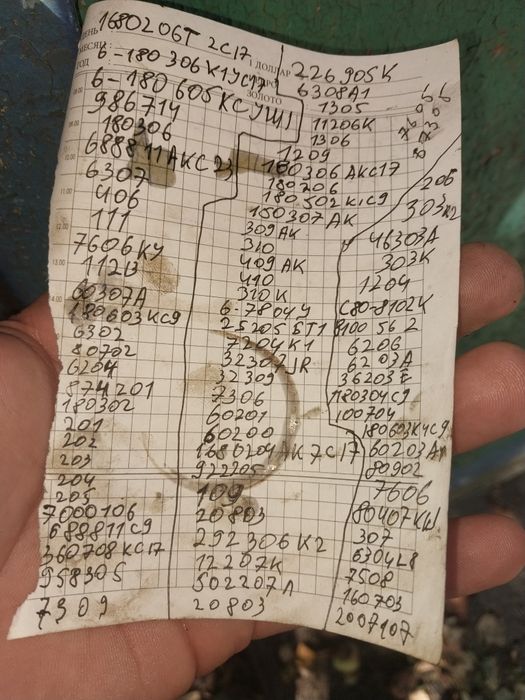 1680206Т 2С17
6-180306К1УС17
6-180605КСУШ1
986714
180306
688811АКС23
6307
406
111
7606КУ
112
60307А
180603КС9
6302
80702
6204
874201
180302
201
202
203
204
205
7000106
688811С9
360708КС17
958305
7309
226905К
6308А1
1305
11206К
1306
1209
180306АКС17
180206
180502К1С9
150307АК
309АК
310
409АК
410
310К
6-7804У
25205БТ1
7204К1
32307JR
32309
7306
60201
60200
1680204АК7С17
922205
109
20803
292306К2
12207К
502207А
20803
ДОЛЛАР
ЗОЛОТО
206
303К2
46303А
303К
1204
С80-8102К
8100562
6206
6203А
36203Е
1180304С9
100704
180603К4С9
60203А
80902
7606
80407
307
6304
7508
160703
2007107